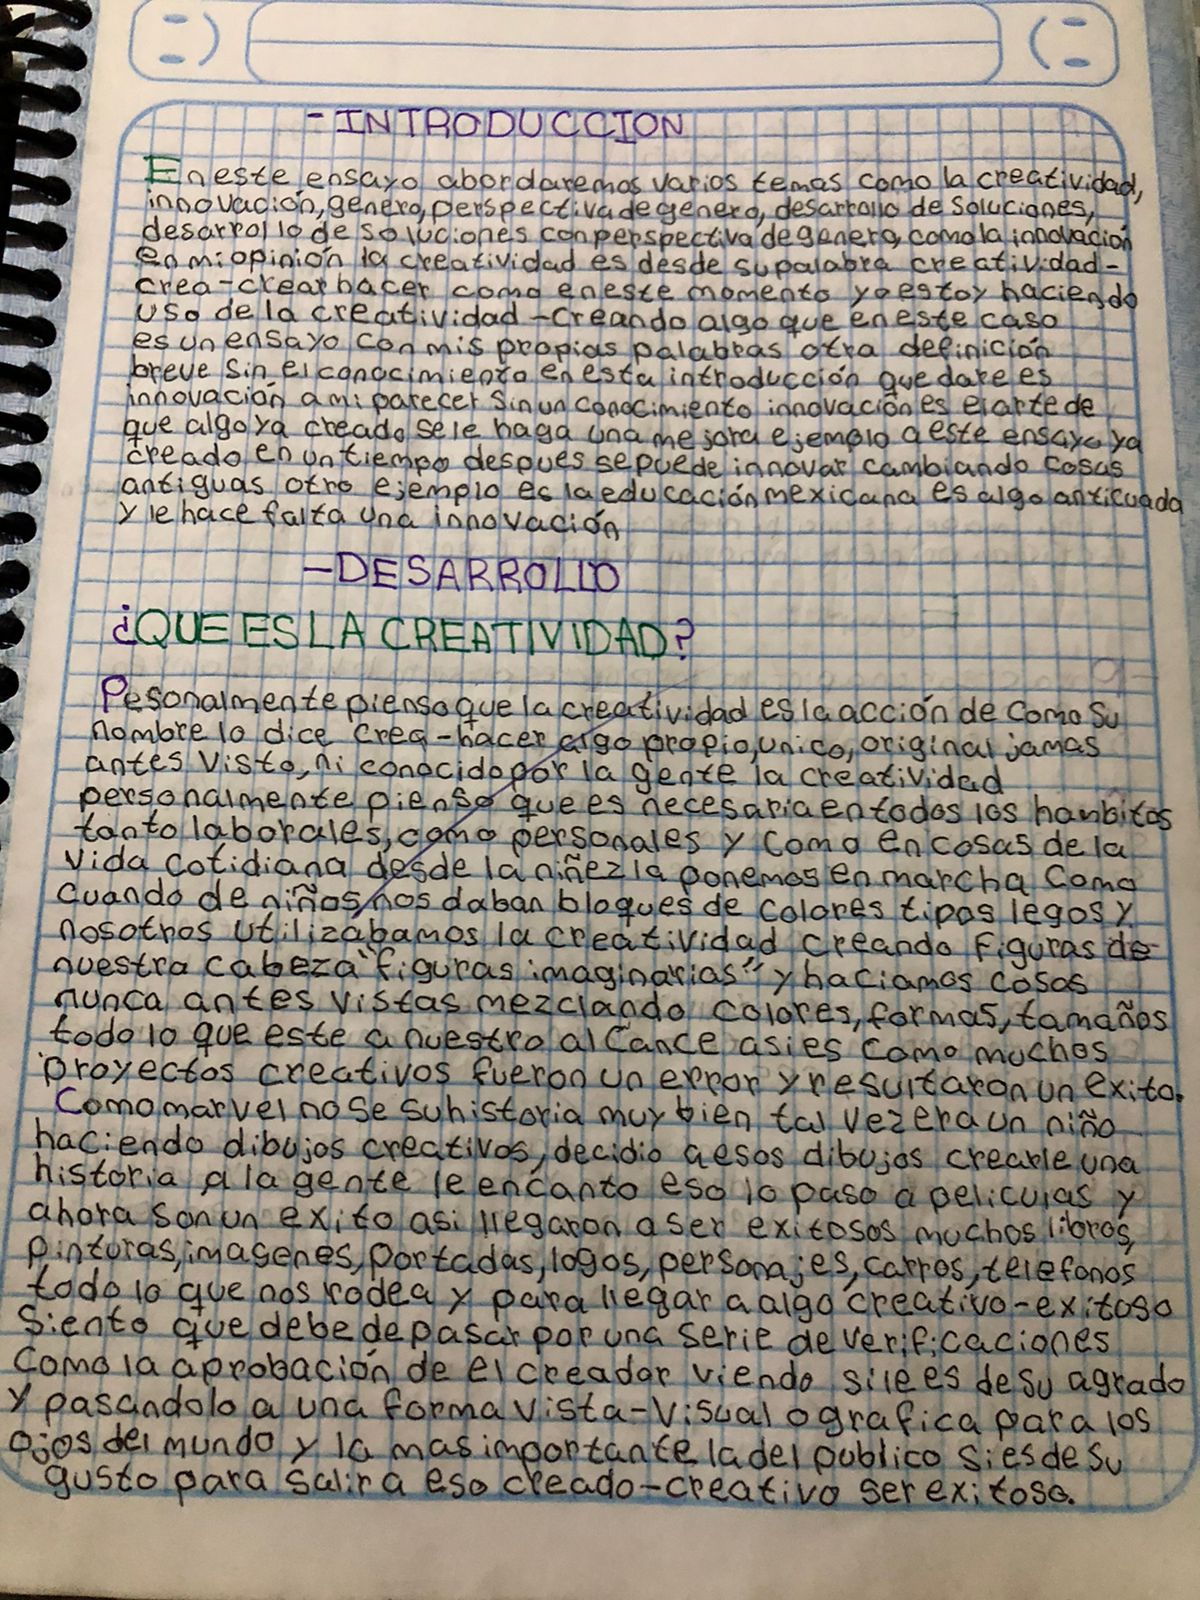 -INTRODUCCION
En este ensayo abordaremos varios temas como la creatividad,
innovación, genero, perspectiva de genero, desarrollo de soluciones,
desarrollo de soluciones con perspectiva de genero, como la innovación
en mi opinión la creatividad es desde su palabra creatividad-
crea-crear hacer como en este momento yo estoy haciendo
uso de la creatividad -Creando algo que en este caso
es un ensayo con mis propias palabras otra definición
breve sin el conocimiento en esta introducción que dare es
innovación a mi parecer sin un conocimiento innovación es el arte de
que algo ya creado se le haga una mejora ejemplo a este ensayo ya
creado en un tiempo despues se puede innovar cambiando cosas
antiguas otro ejemplo es la educación mexicana es algo anticuada
y le hace falta una innovación
-DESARROLLO
¿QUE ES LA CREATIVIDAD?
Pesonalmente pienso que la creatividad es la acción de como su
nombre lo dice crea-hacer algo propio, unico, original jamas
antes visto, ni conocido por la gente la creatividad
personalmente pienso que es necesaria en todos los hambitos
tanto laborales, como personales y como en cosas de la
vida cotidiana desde la niñez la ponemos en marcha como
cuando de niños nos daban bloques de colores tipos legos y
nosotros utilizabamos la creatividad creando figuras de
nuestra cabeza "figuras imaginarias" y haciamos cosas
nunca antes vistas mezclando colores, formas, tamaños
todo lo que este a nuestro alcance asi es como muchos
proyectos creativos fueron un error y resultaron un exito.
Como marvel no se su historia muy bien tal vez era un niño
haciendo dibujos creativos, decidio a esos dibujos crearle una
historia a la gente le encanto eso lo paso a peliculas y
ahora son un exito asi llegaron a ser exitosos muchos libros,
pinturas, imagenes, portadas, logos, personajes, carros, telefonos
todo lo que nos rodea y para llegar a algo creativo-exitoso
siento que debe de pasar por una serie de verificaciones
como la aprobación de el creador viendo si le es de su agrado
y pasandolo a una forma vista-visual o grafica para los
ojos del mundo y la mas importante la del publico si es de su
gusto para salir a eso creado-creativo ser exitoso.